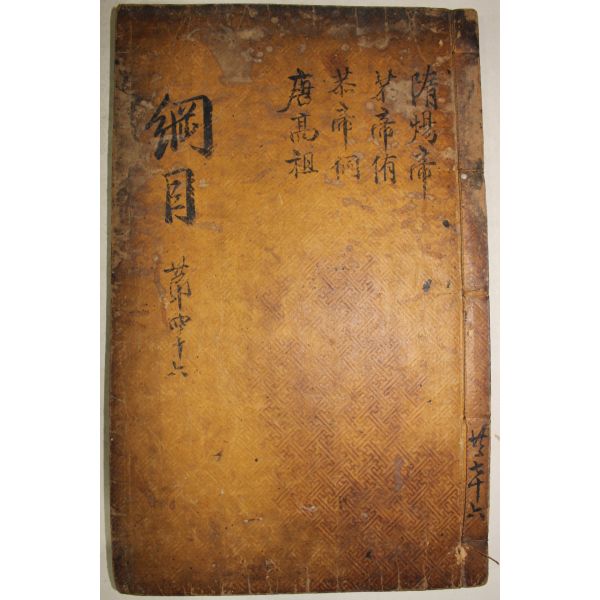 隋煬帝
恭帝侑
恭帝侗
唐高祖
綱目
第四十六
共七十六